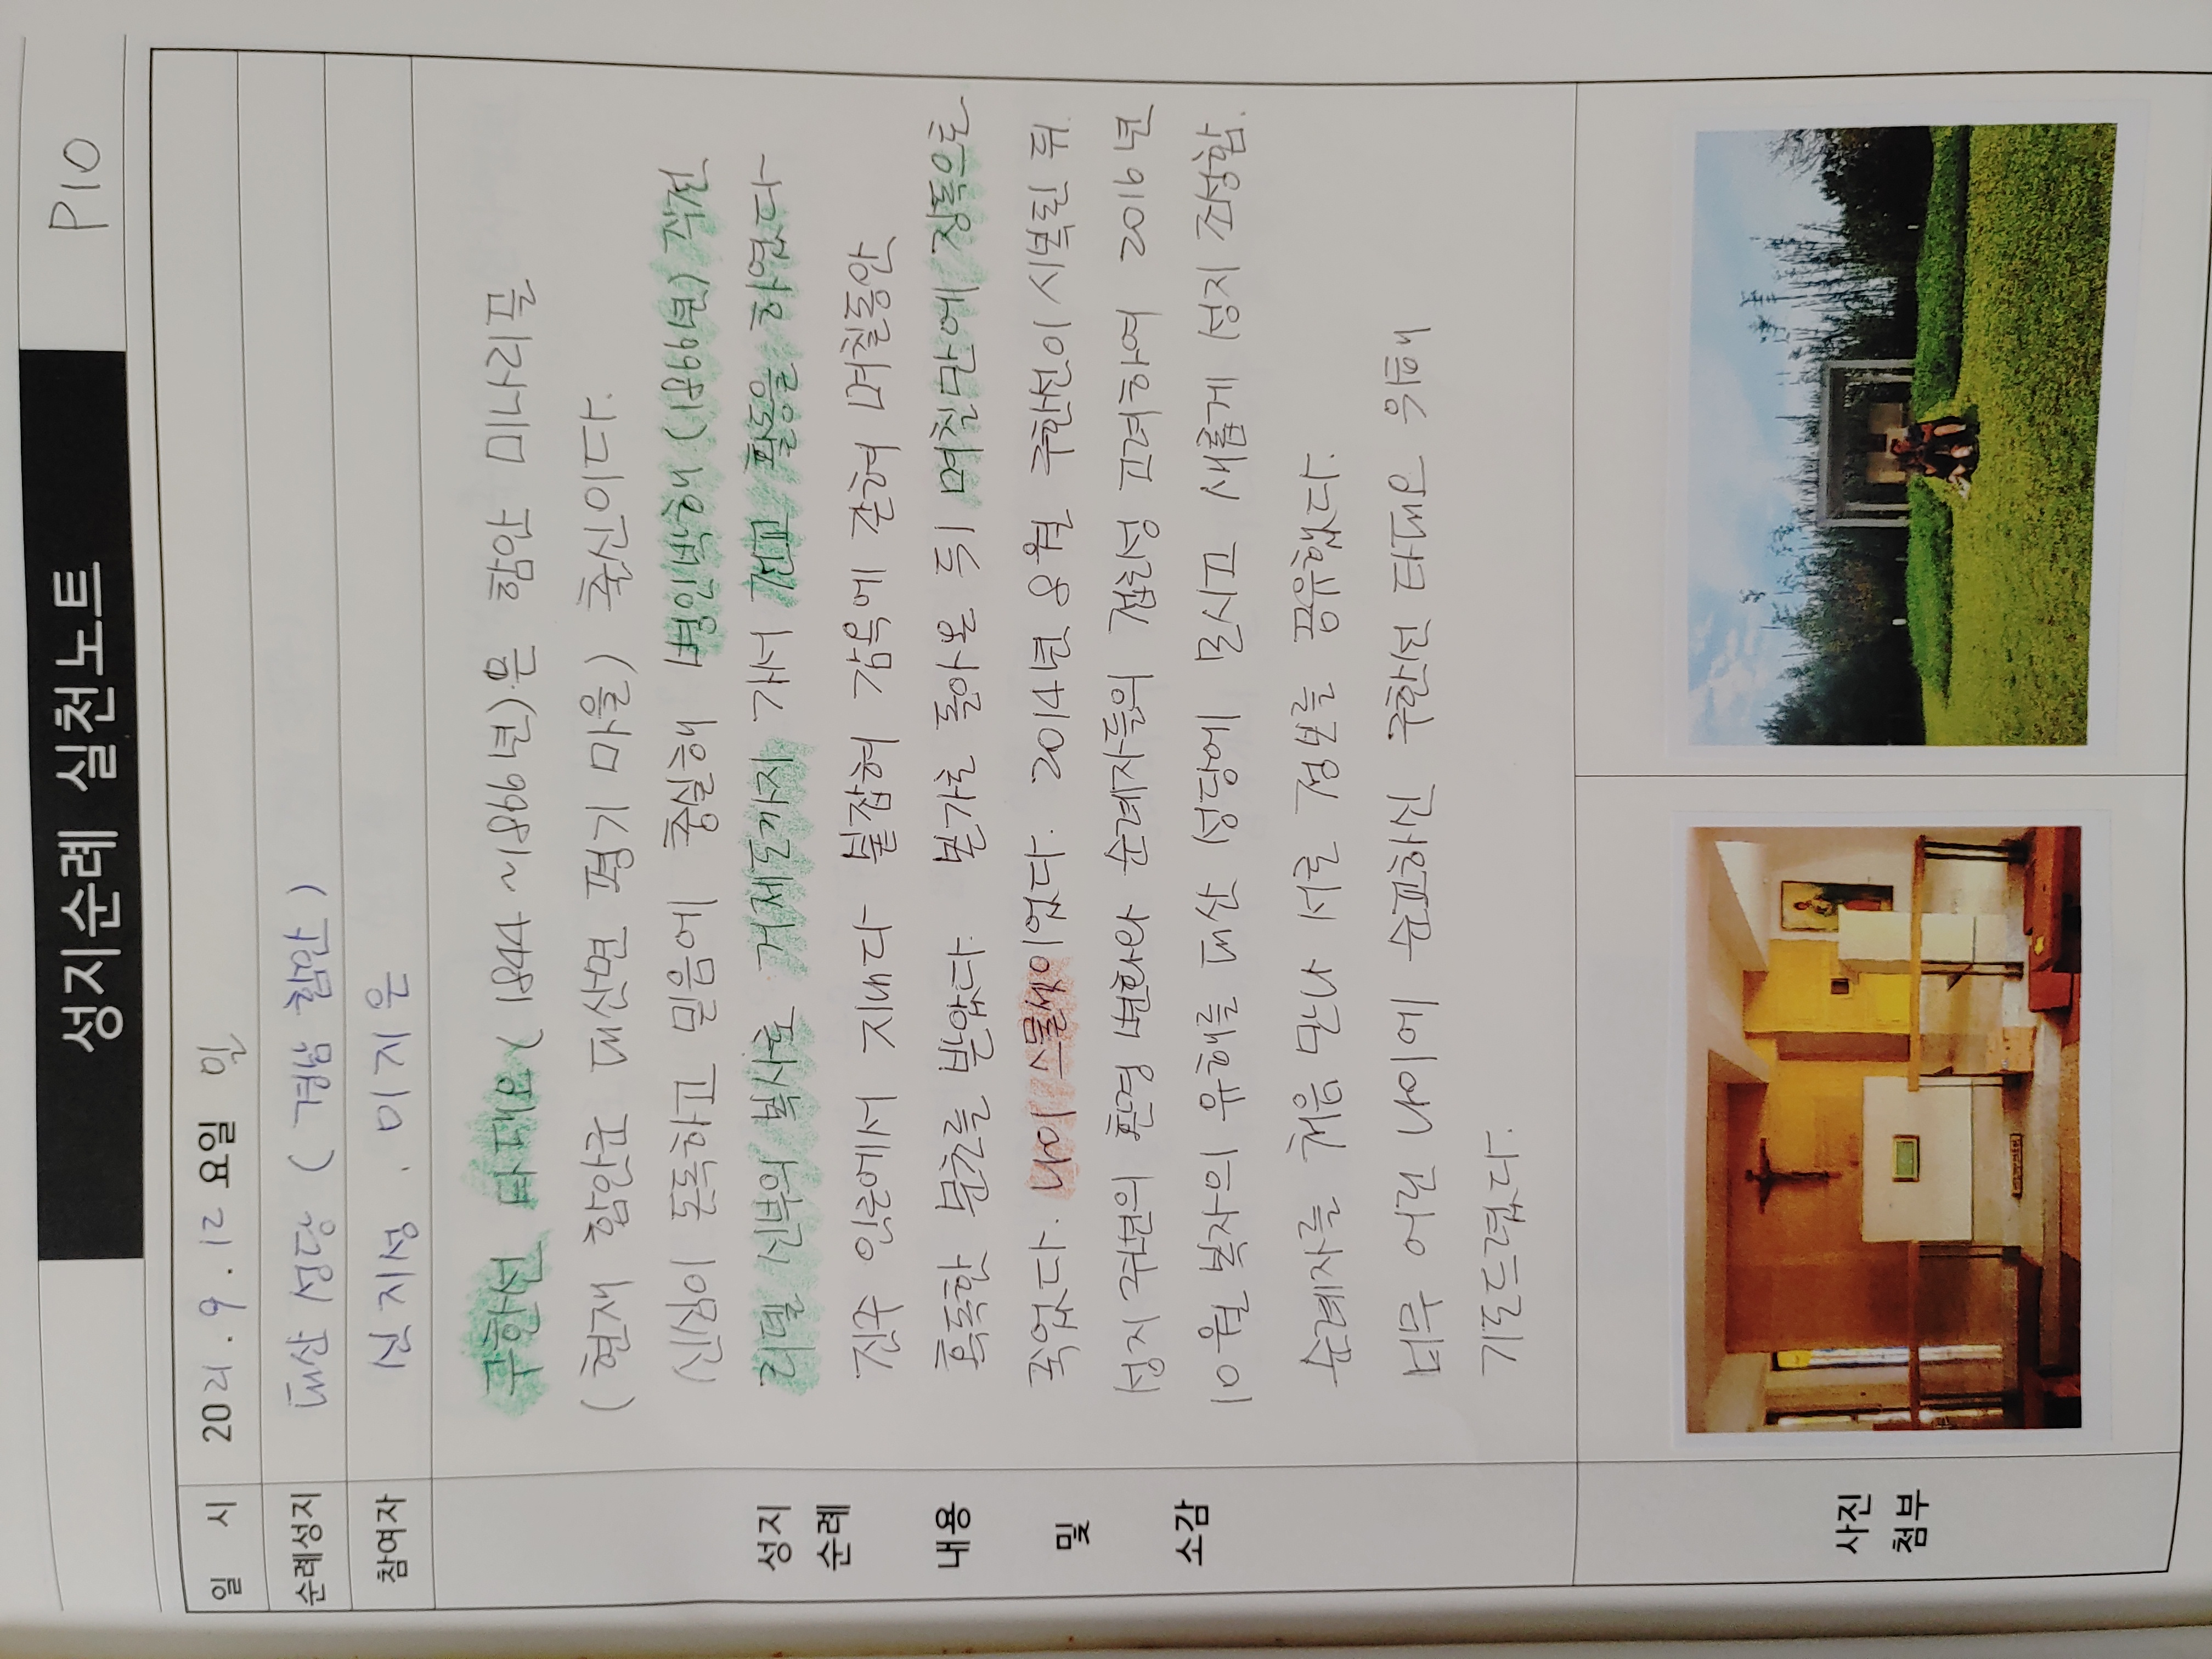 성지순례 실천노트
P10
일 시 2021. 9. 12 요일 일
순례성지 대산 성당 ( 경남 함안 )
참여자 신지성 . 이지은
구한선 타대오 (1844 ~ 1866년)은 함안 미나리골
(현재 함안군 대산면 평기 마을) 출신이다.
신심이 돈독하고 믿음에 충실해 병인박해 (1866년) 직전
리델 신부의 복사로 거제도까지 가서 전교 활동을 하였다
진주 인근에서 지내다 붙잡혀 감옥에 갇혀 며칠동안
혹독한 문초를 받았다. 본가로 돌아온 뒤 며칠만에 장독으로
죽었다. 나이 스물셋이었다. 2014년 8월 구한선이 시복된 뒤
성지 주변의 환경 변화와 순례자들의 접근성 고려하여 2016년
10월 복자의 유해를 대산 성당에 모시고 새롭게 성지 조성함.
순례자를 처음 만나 서로 정보를 공유했다.
너무 어린 나이에 순교하신 구한선 타대오 위해
기도드렸다.
성지
순례
내용
및
소감
사진
첨부